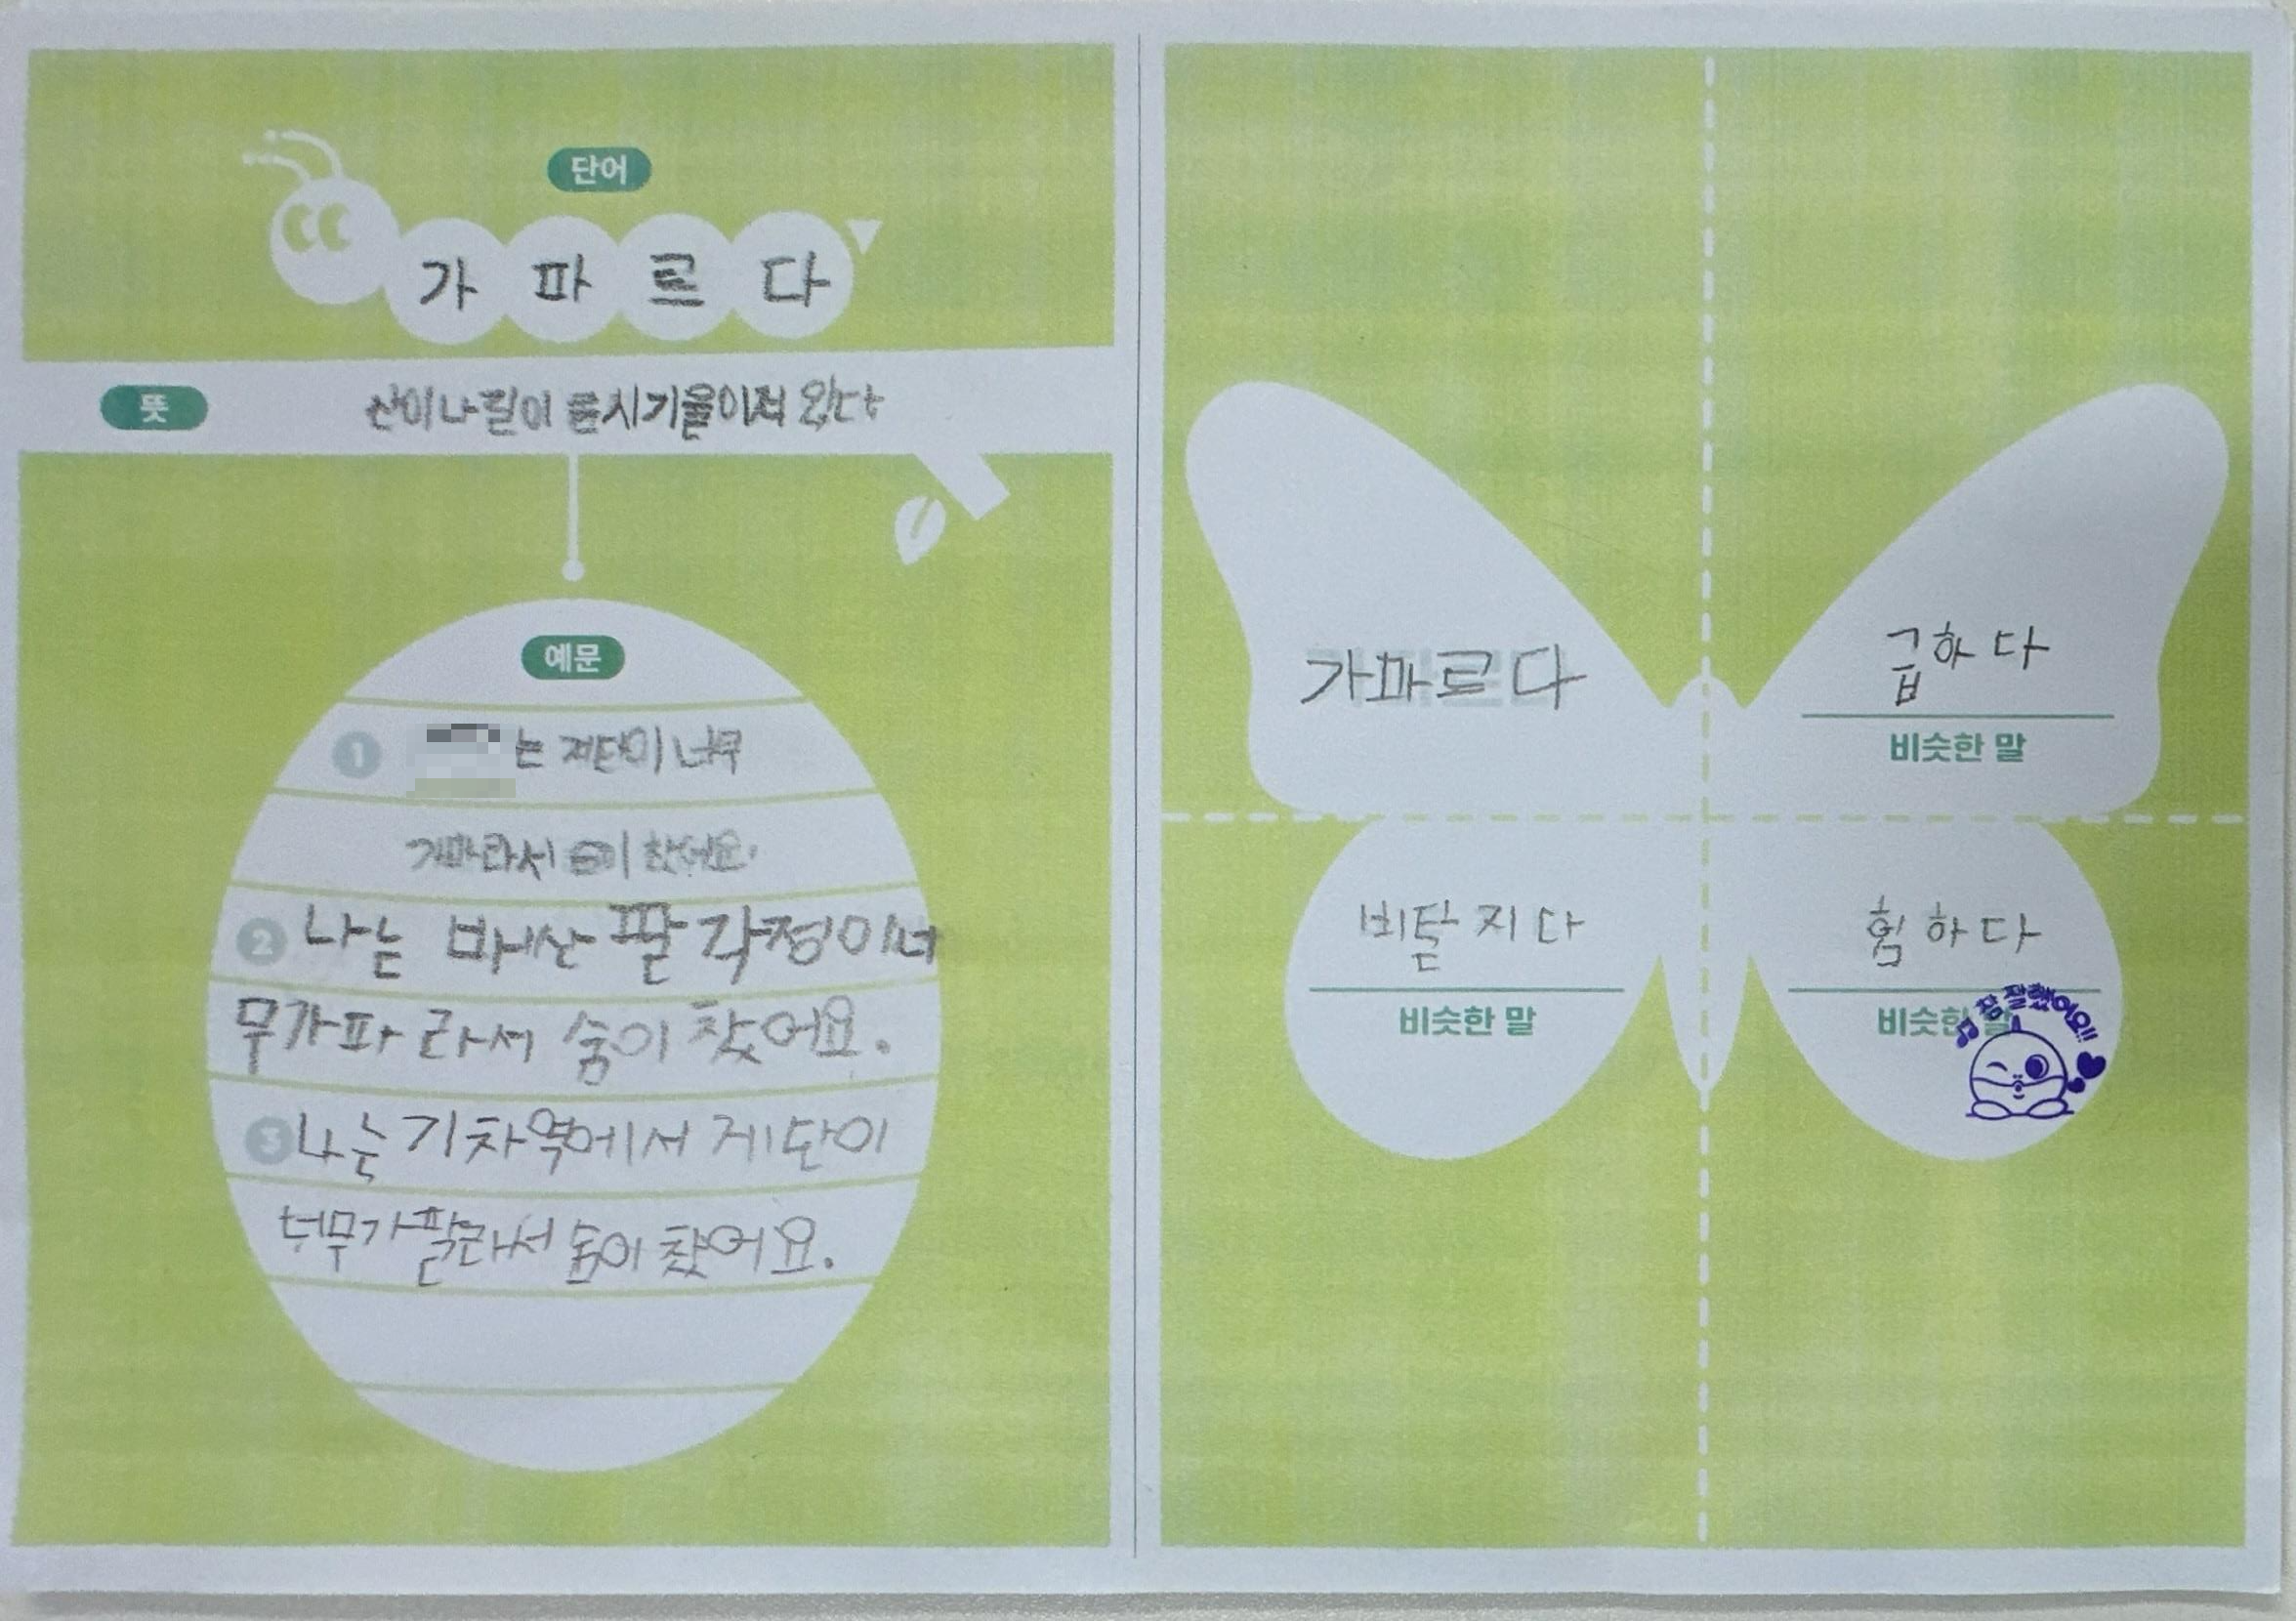 단어
가 파 르 다
뜻
산이나 길이 기울어져 있다
예문
1 는 계단이 너무
가파라서 숨이 찼어요.
2 나는 배산 팔각정이너
무가파라서 숨이 찼어요.
3 나는 기차역에서 계단이
너무가팔라서 숨이 찼어요.
가파르다
급하다
비슷한 말
비탈지다
비슷한 말
험하다
비슷한 말
참 잘했어요!!